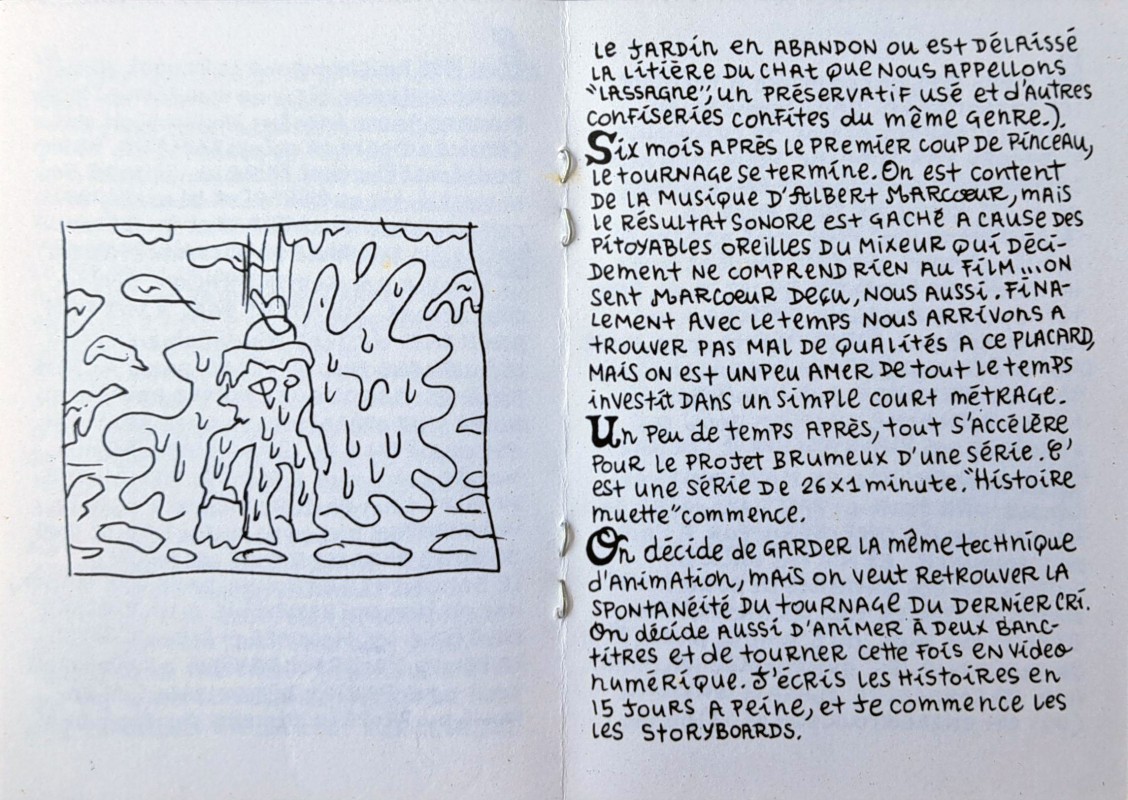 Le JARDin en ABANDON OU est DÉLAISSÉ
LA LitiÈRE DU CHAt QUE NOUS APPELLONS
"LASSAGNE", un PRÉSERVATIF USÉ et d'AUTRES
CONFISERIES CONFITES du même GENRE.).
Six mois APRÈS LE PREMIER COUP DE PinCEAU,
Le tOURNAGE Se tERMINE. On est content
DE LA MUSIQUE D'ALBERT MARCOEUR, MAIS
LE RÉSULTAT SONORE EST GACHÉ A CAUSE DES
PITOYABLES OREILLES DU MIXEUR QUI DÉCI-
DEMENT NE COMPREND RIEN AU FILM...ON
SENT MARCOEUR DEÇU, NOUS AUSSI. FINA-
LEMENT AVEC LE TEMPS NOUS ARRIVONS A
TROUVER PAS MAL DE QUALITÉS A CE PLACARD,
MAIS ON EST UN PEU AMER DE TOUT LE TEMPS
INVESTIT DANS UN SIMPLE COURT MÉTRAGE.
Un PEU de temps APRÈS, tout S'ACCÉLÈRE
POUR LE PROJET BRUMEUX D'UNE SÉRIE. C'
est une SÉRIE DE 26x1 minute. "Histoire
muette" commence.
On décide de GARDER LA même technique
d'AniMAtion, MAIS on veut RetROUVER LA
SPONTANÉITÉ DU TOURNAGE DU DERNIER CRI.
On décide AUSSI D'ANIMER À DEUX BANC-
TITRES ET DE TOURNER CETTE FOIS EN VIDEO
NUMÉRIQUE. J'ÉCRIS LES HISTOIRES EN
15 JOURS A PEINE, ET JE COMMENCE LES
LES STORYBOARDS.